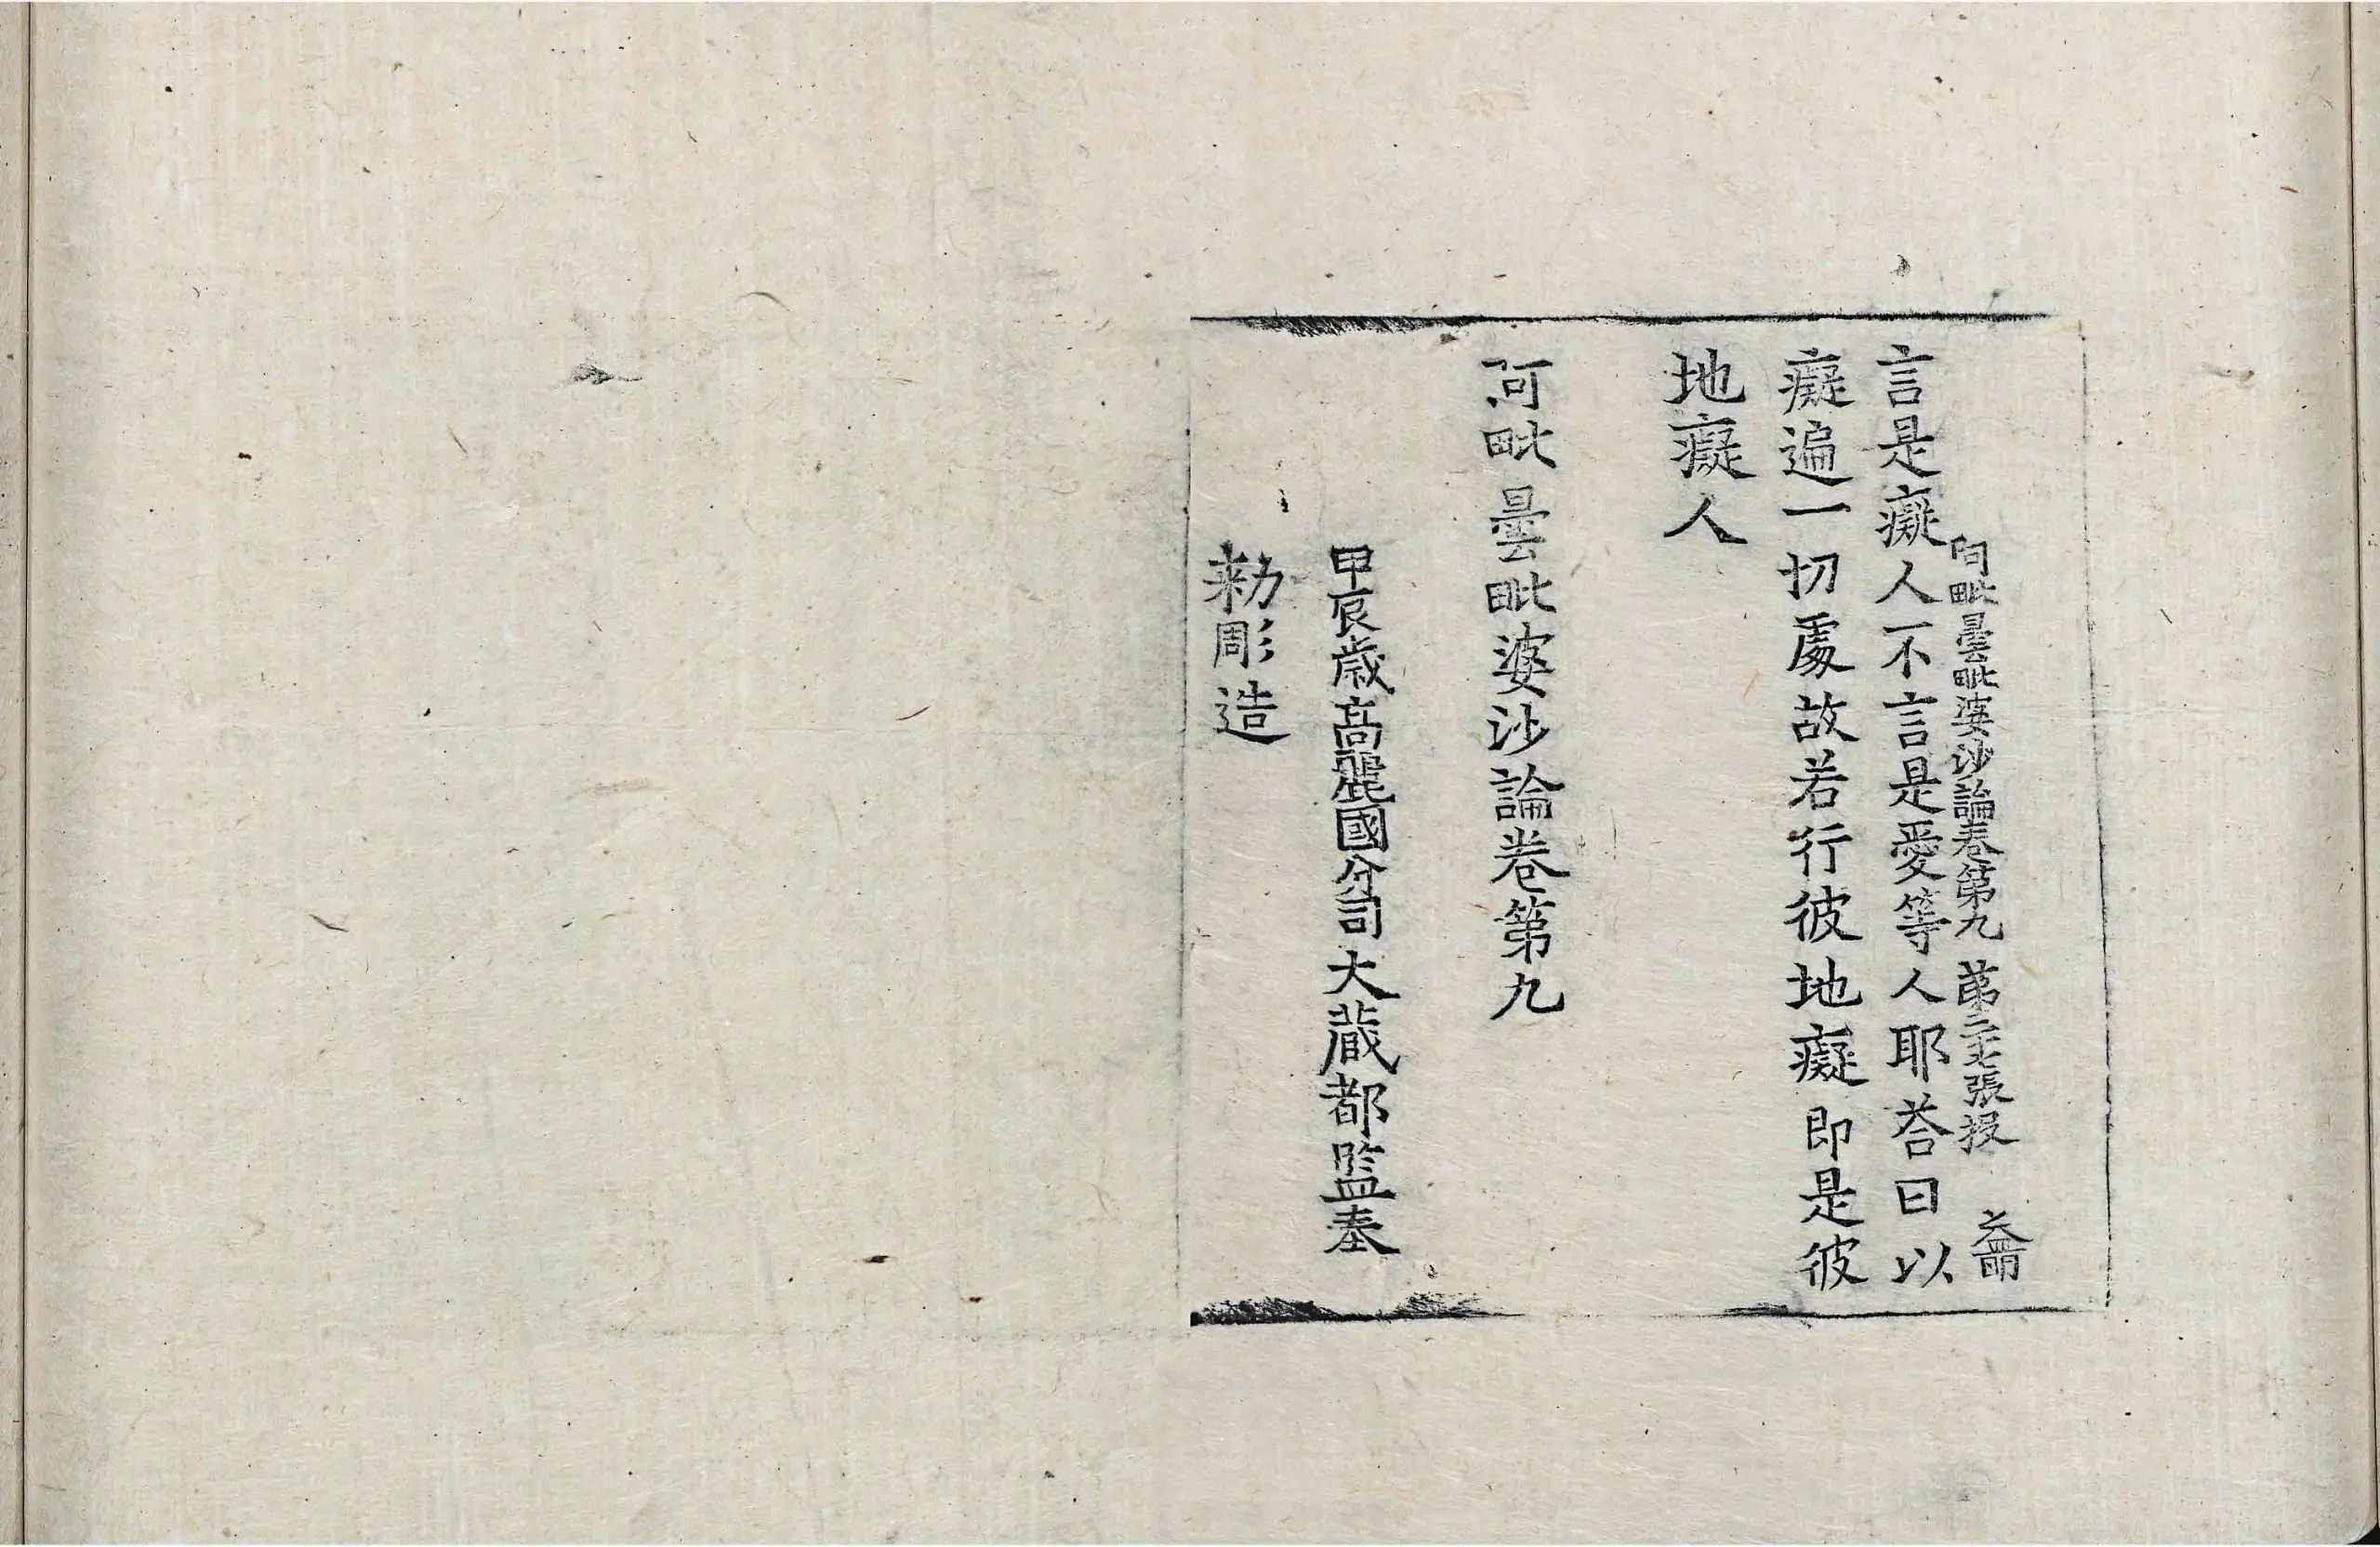 阿毗曇毗婆沙論卷第九 苐二十七張 投
言是癡人不言是愛等人耶荅曰以
癡遍一切處故若行彼地癡即是彼
地癡人
阿毗曇毗婆沙論卷第九
甲辰歲高麗國分司大藏都監奉
勑彫造